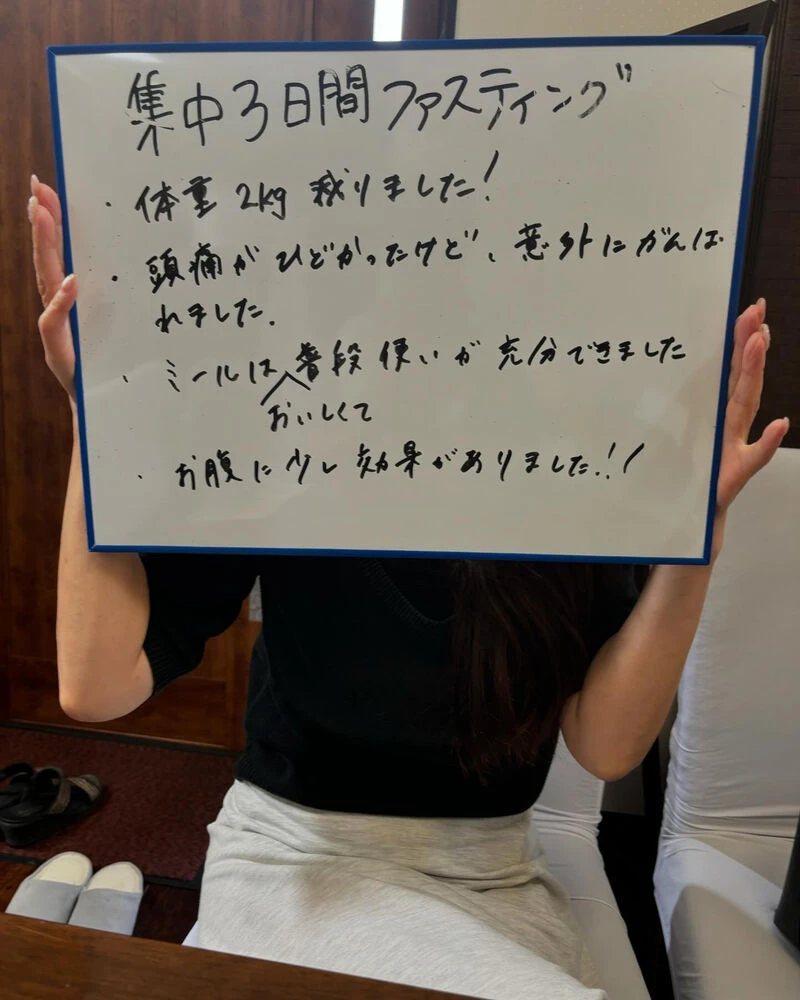 集中3日間ファスティング
・体重2kg減りました!
・頭痛がひどかったけど、意外にがんば
れました.
・ミールは普段使いが充分できました
おいしくて
・お腹に少し効果がありました!!